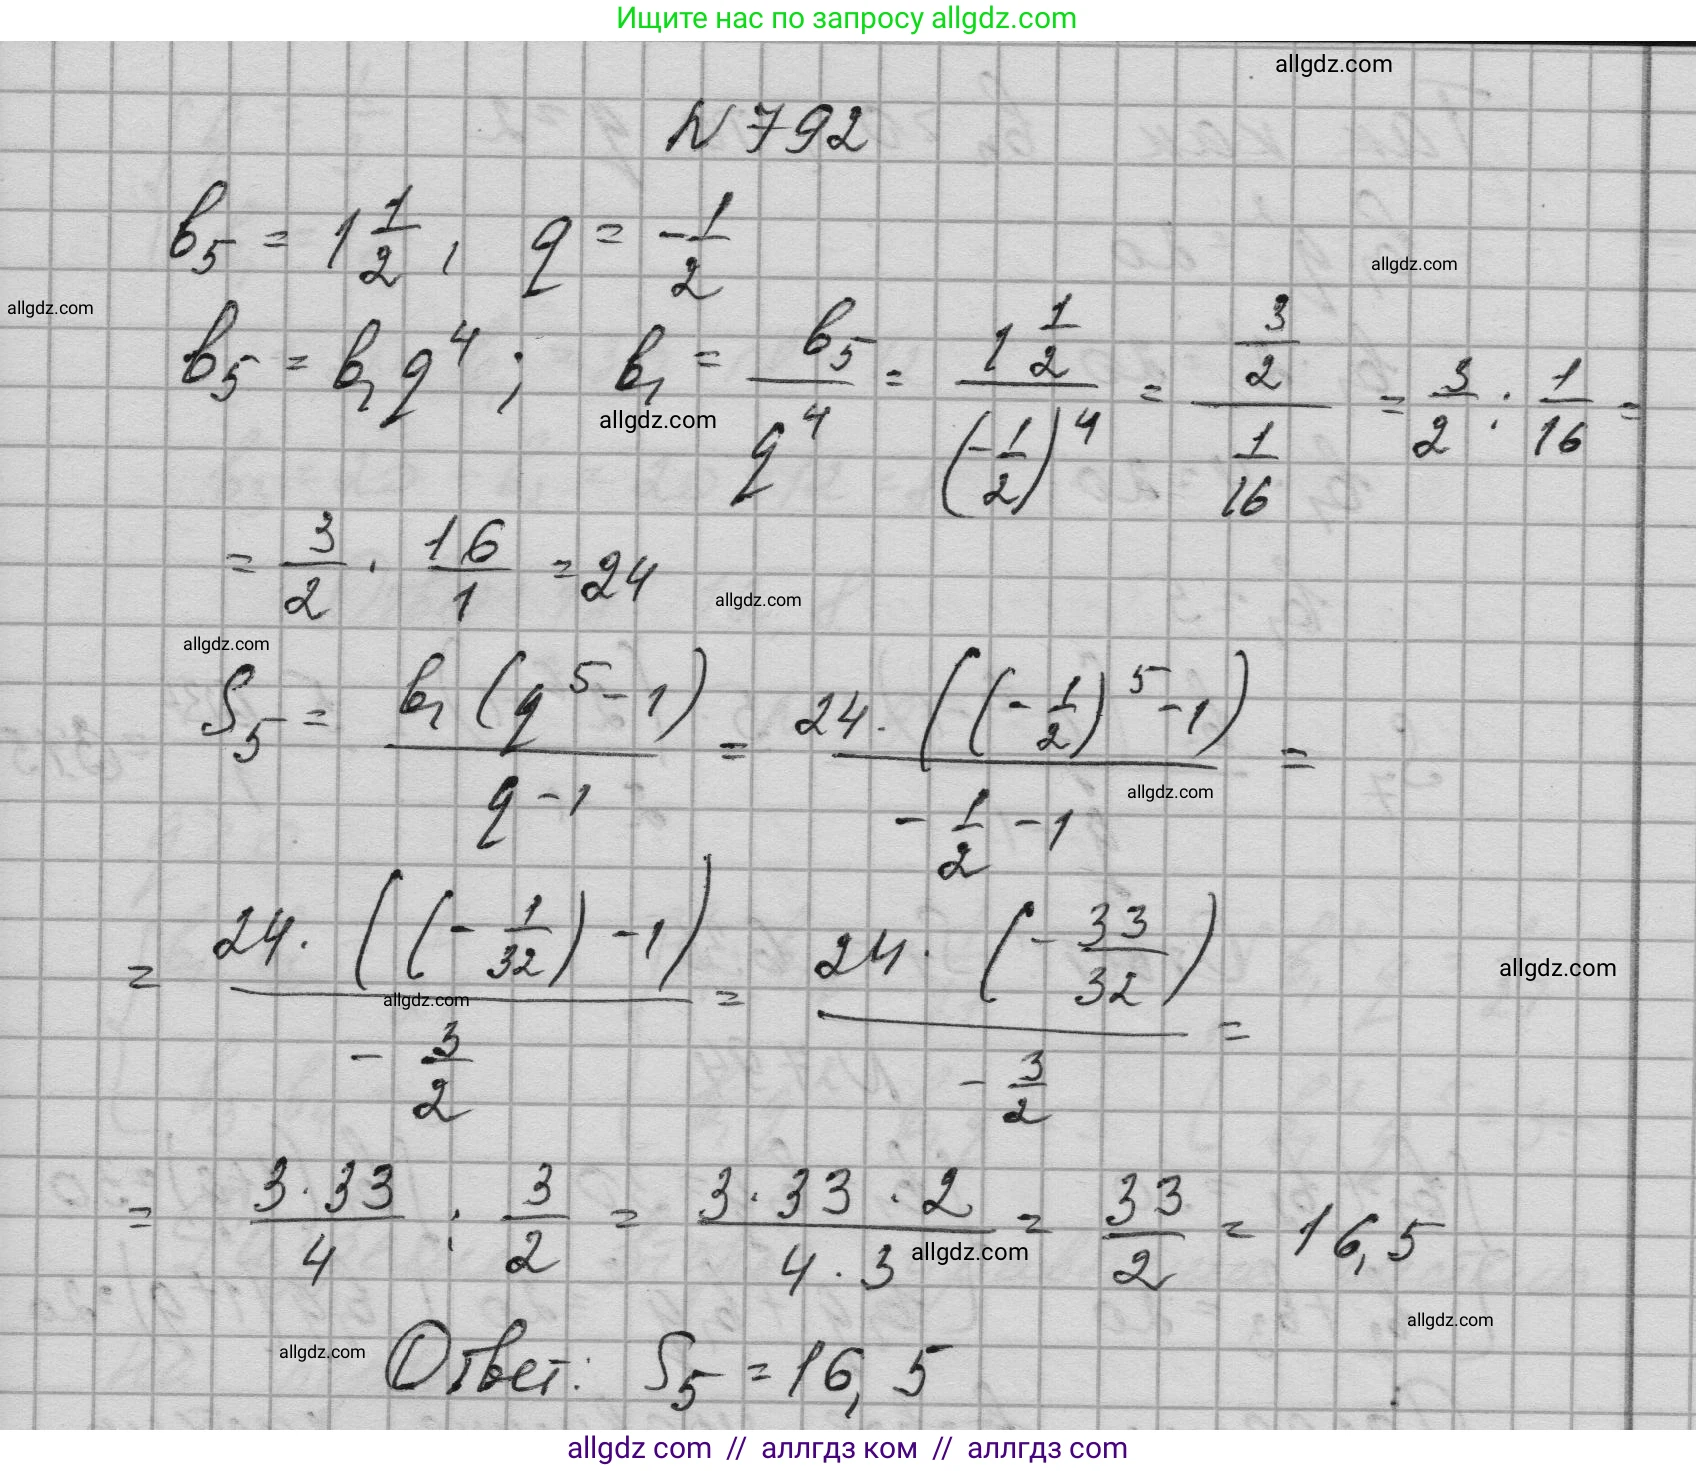 Ищите нас по запросу allgdz.com
allgdz.com
N 792
b₅ = 1 1/2, q = -1/2
allgdz.com
allgdz.com
b₅ = b₁q⁴; b₁ = b₅/q⁴ = (1 1/2)/(-1/2)⁴ = (3/2)/(1/16) = 3/2 : 1/16 =
allgdz.com
= 3/2 · 16/1 = 24
allgdz.com
allgdz.com
S₅ = b₁(q⁵-1)/(q-1) = 24·((-1/2)⁵-1)/(-1/2-1) =
allgdz.com
= 24·((-1/32)-1)/(-3/2) = 24·(-33/32)/(-3/2) =
allgdz.com
allgdz.com
= 3·33/4 : 3/2 = 3·33·2/4·3 = 33/2 = 16,5
allgdz.com
allgdz.com
allgdz.com
Ответ: S₅ = 16,5
allgdz com // аллгдз ком // аллгдз com